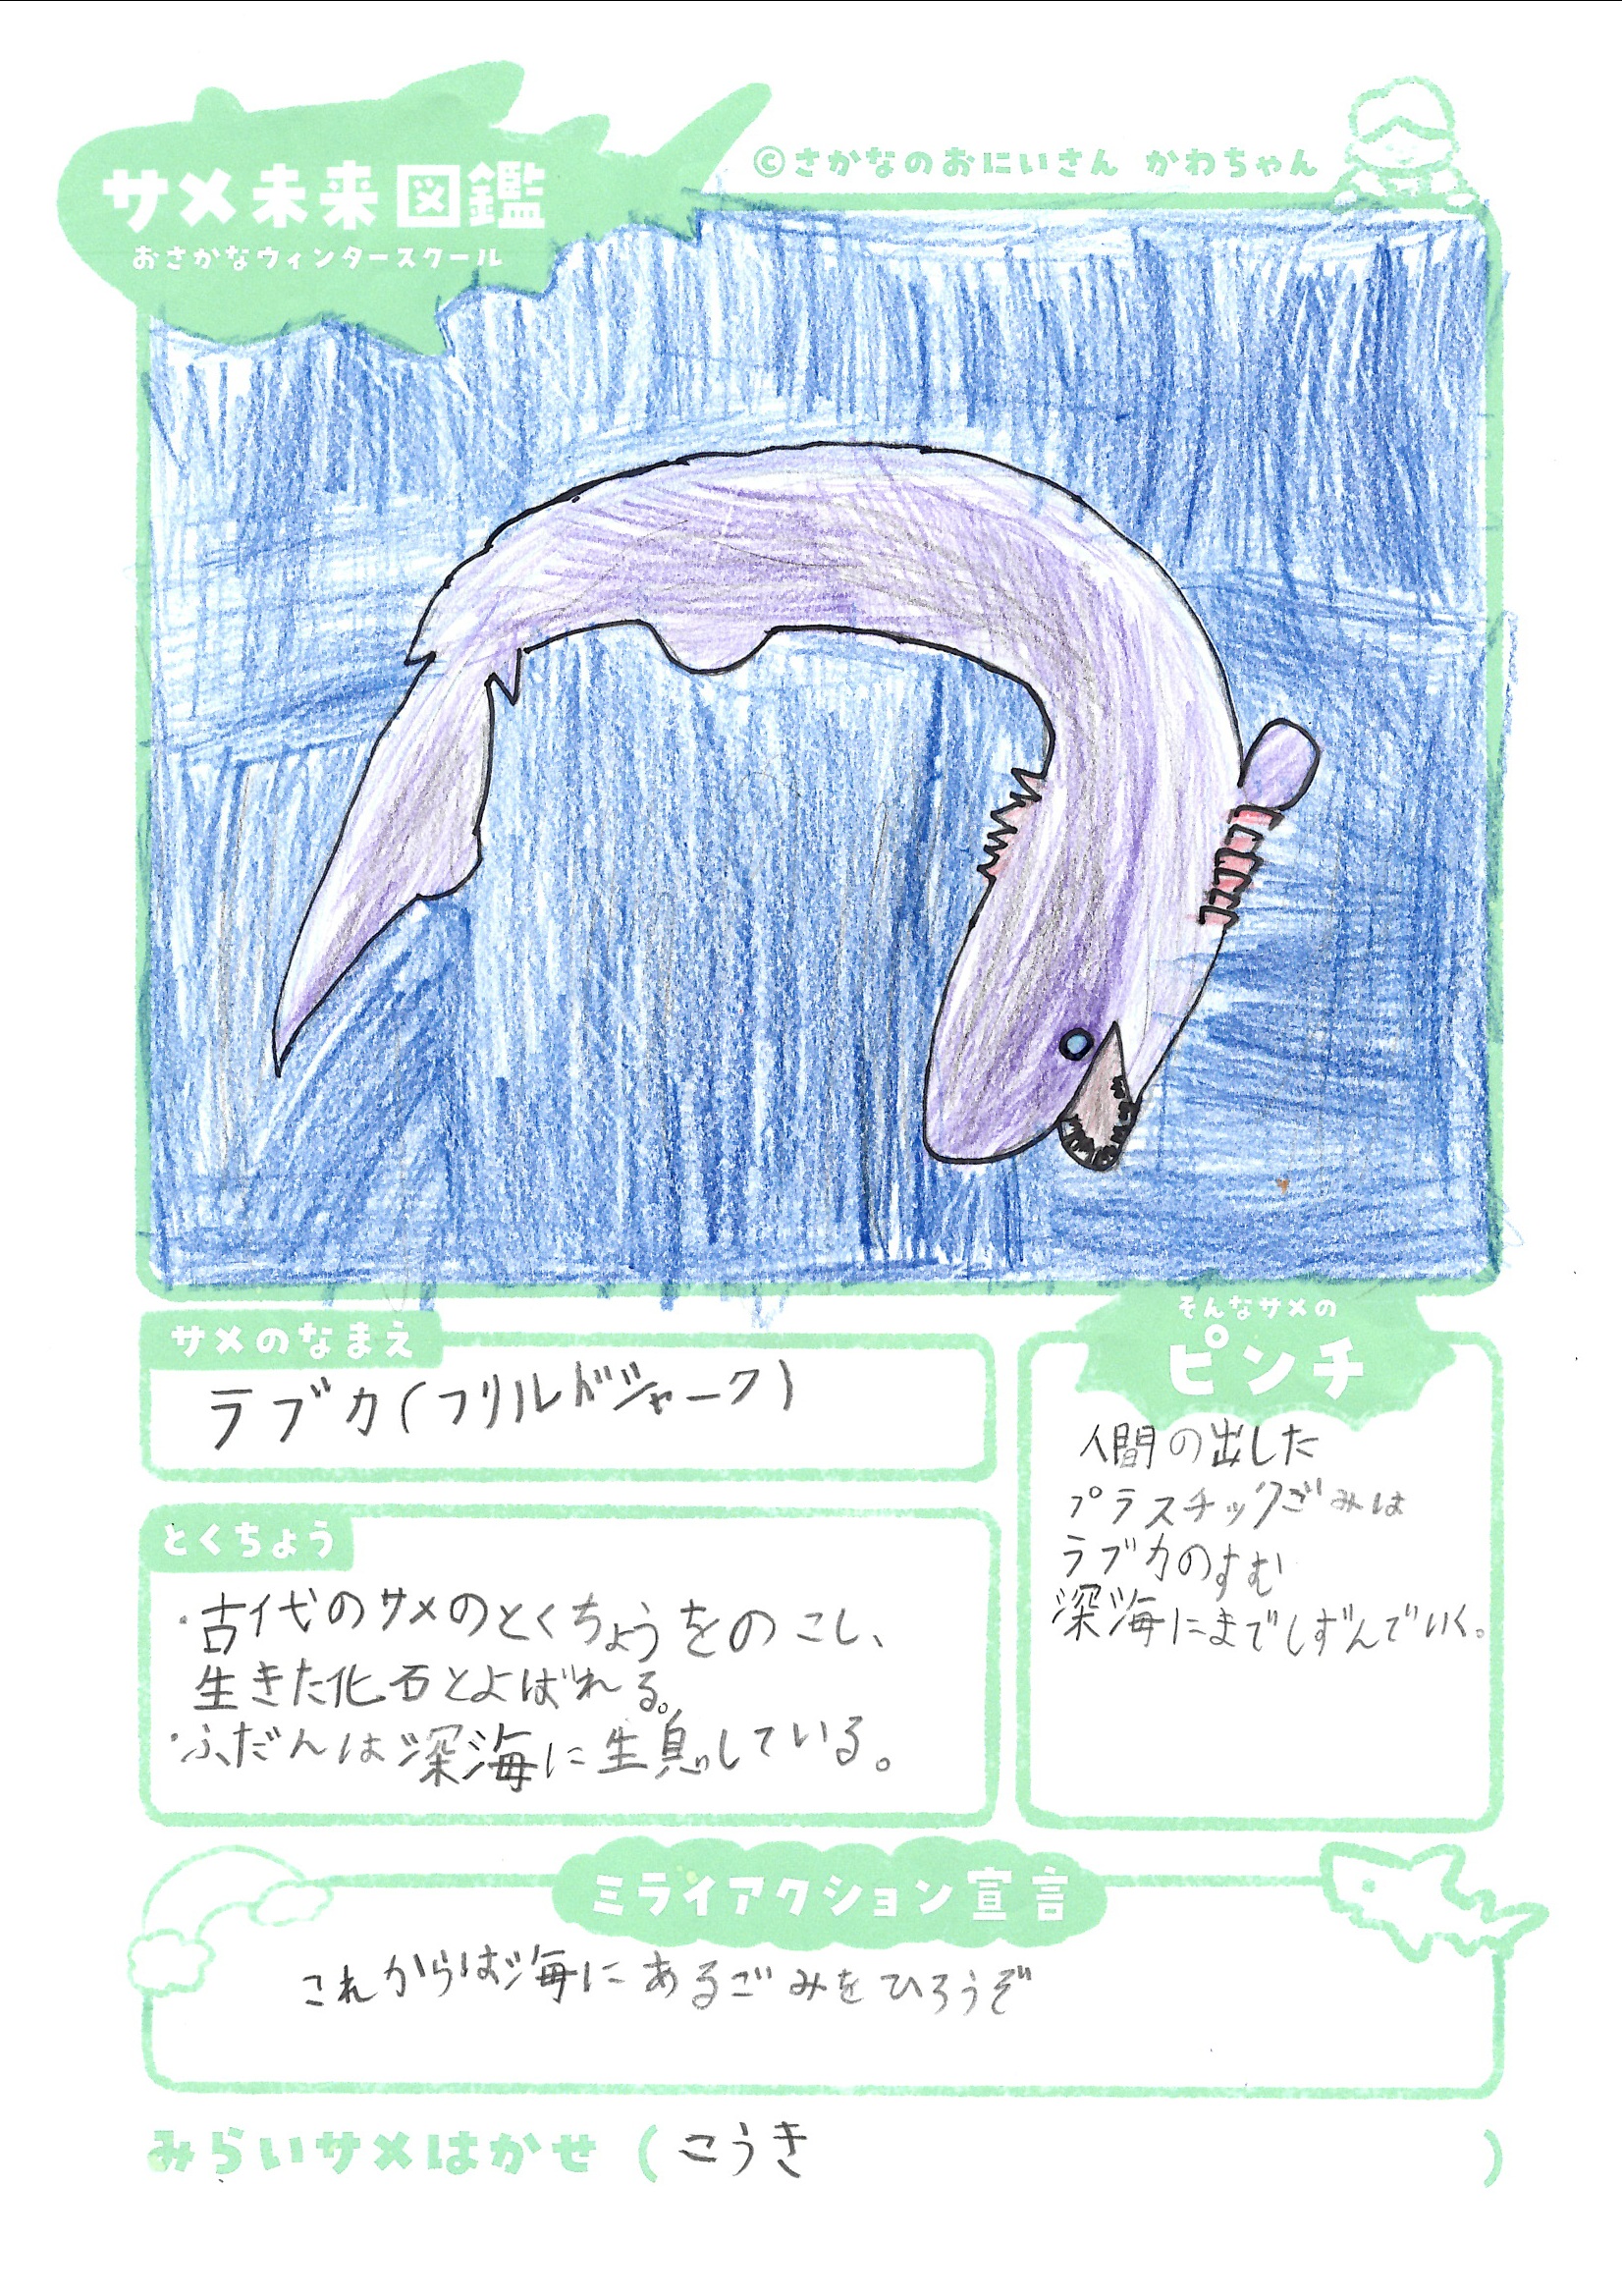 サメ未来図鑑
おさかなウィンタースクール
©さかなのおにいさん かわちゃん
サメのなまえ
ラブカ(フリルドジャーク)
とくちょう
・古代のサメのとくちょうをのこし、
生きた化石とよばれる。
・ふだんは深海に生息している。
そんなサメの
ピンチ
人間の出した
プラスチックごみは
ラブカのすむ
深海にまでしずんでいく。
ミライアクション宣言
これからは海にあるごみをひろうぞ
みらいサメはかせ(こうき)